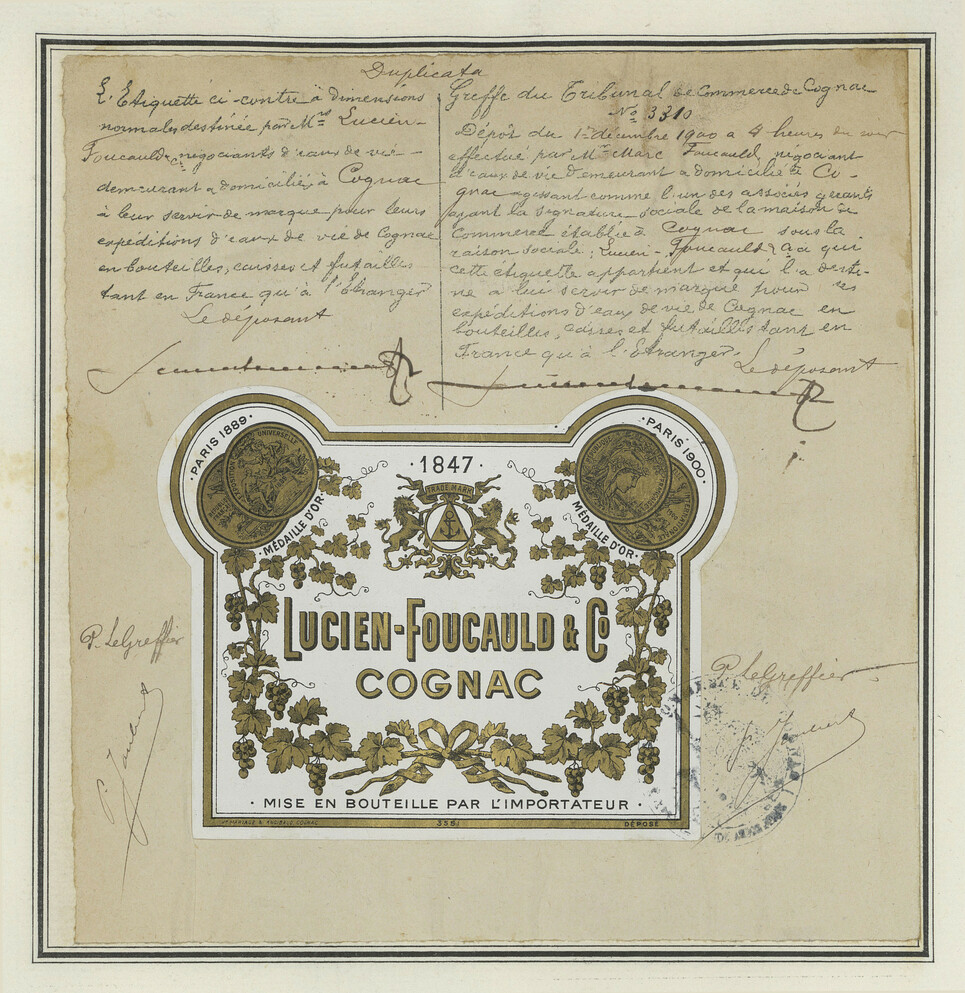 Duplicata
L'Etiquette ci-contre à dimensions
normales destinée par Mrs Lucien-
Foucauld & Co négociants d'eaux de vie
demeurant & domiciliés à Cognac
à leur servir de marque pour leurs
expéditions d'eaux de vie de Cognac
en bouteilles, caisses et futailles
tant en France qu'à l'Étranger
Le déposant
Greffe du Tribunal de Commerce de Cognac
No 3310
Dépôt du 1er décembre 1900 à 4 heures du soir
effectué par Mr Marc Foucauld, négociant
d'eaux de vie demeurant & domicilié à Co-
gnac agissant comme l'un des associés gérants
ayant la signature sociale de la maison de
Commerce établie à Cognac sous la
raison sociale: Lucien-Foucauld & Co à qui
cette étiquette appartient et qui l'a desti-
née à lui servir de marque pour ses
expéditions d'eaux de vie de Cognac en
bouteilles, caisses et futailles tant en
France qu'à l'Etranger.
Le déposant
PARIS 1889
MÉDAILLE D'OR
PARIS 1900
MÉDAILLE D'OR
· 1847 ·
TRADE MARK
LUCIEN-FOUCAULD & Co
COGNAC
· MISE EN BOUTEILLE PAR L'IMPORTATEUR ·
COGNAC
DÉPOSÉ
P. Le Greffier
P. Le Greffier